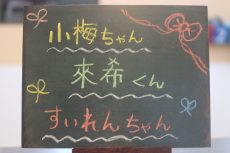 小梅ちゃん
來希くん
すいれんちゃん